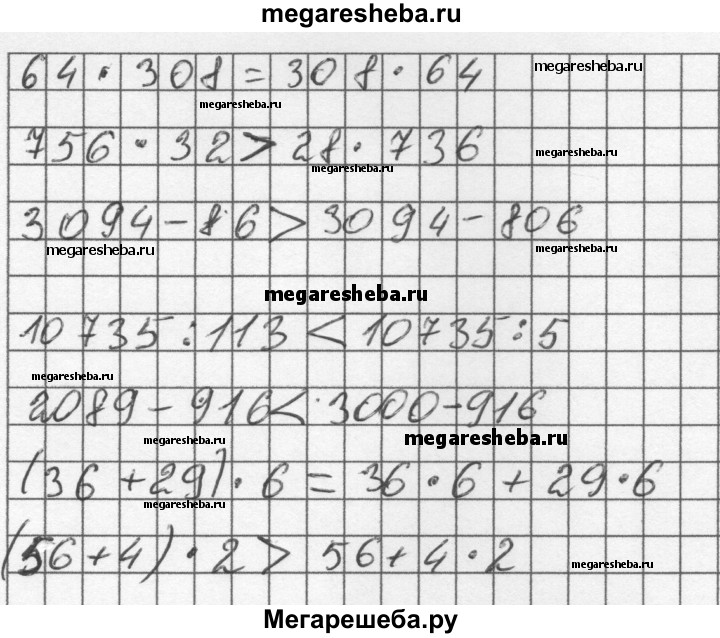 megaresheba.ru
64 · 308 = 308 · 64 megaresheba.ru
megaresheba.ru
756 · 32 > 28 · 736 megaresheba.ru
megaresheba.ru
3094 - 86 > 3094 - 806
megaresheba.ru megaresheba.ru
megaresheba.ru
10735 : 113 < 10735 : 5
megaresheba.ru
2089 - 916 < 3000 - 916
megaresheba.ru megaresheba.ru
(36 + 29) · 6 = 36 · 6 + 29 · 6
megaresheba.ru
(56 + 4) · 2 > 56 + 4 · 2 megaresheba.ru
Мегарешеба.ру